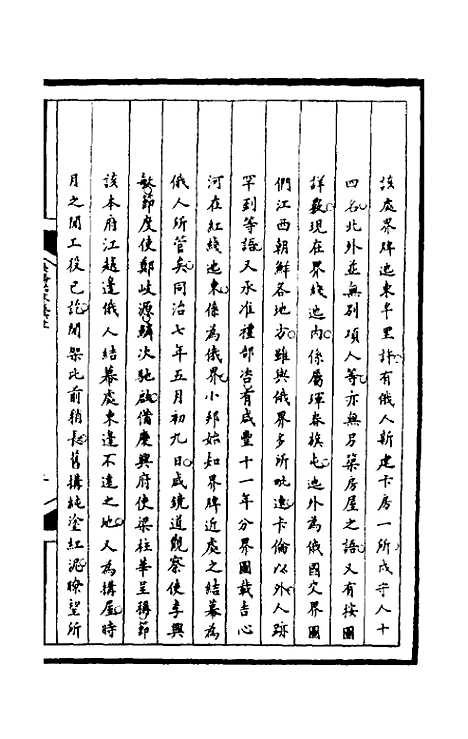 該處界牌迤東半里許有俄人新建卡房一所戍守人十
四名此外並無別項人等亦無另築房屋之語又有按圖
詳覈現在界綫迤內係屬琿春族屯迤外為俄國交界圖
們江西朝鮮各地方雖與俄界多所毗連卡倫以外人跡
罕到等語又承准禮部咨有咸豐十一年分界圖載吉心
河在紅綫迤東係為俄界小邦始知界牌近處之結幕為
俄人所管矣同治七年五月初九日咸鏡道觀察使李興
敏節度使鄭岐源鱗次馳啟備慶興府使梁柱華呈稱節
該本府江越邊俄人結幕處東邊不遠之地又為搆屋時
月之間工役已訖間架比前稍長舊搆純塗紅泥瞭望所